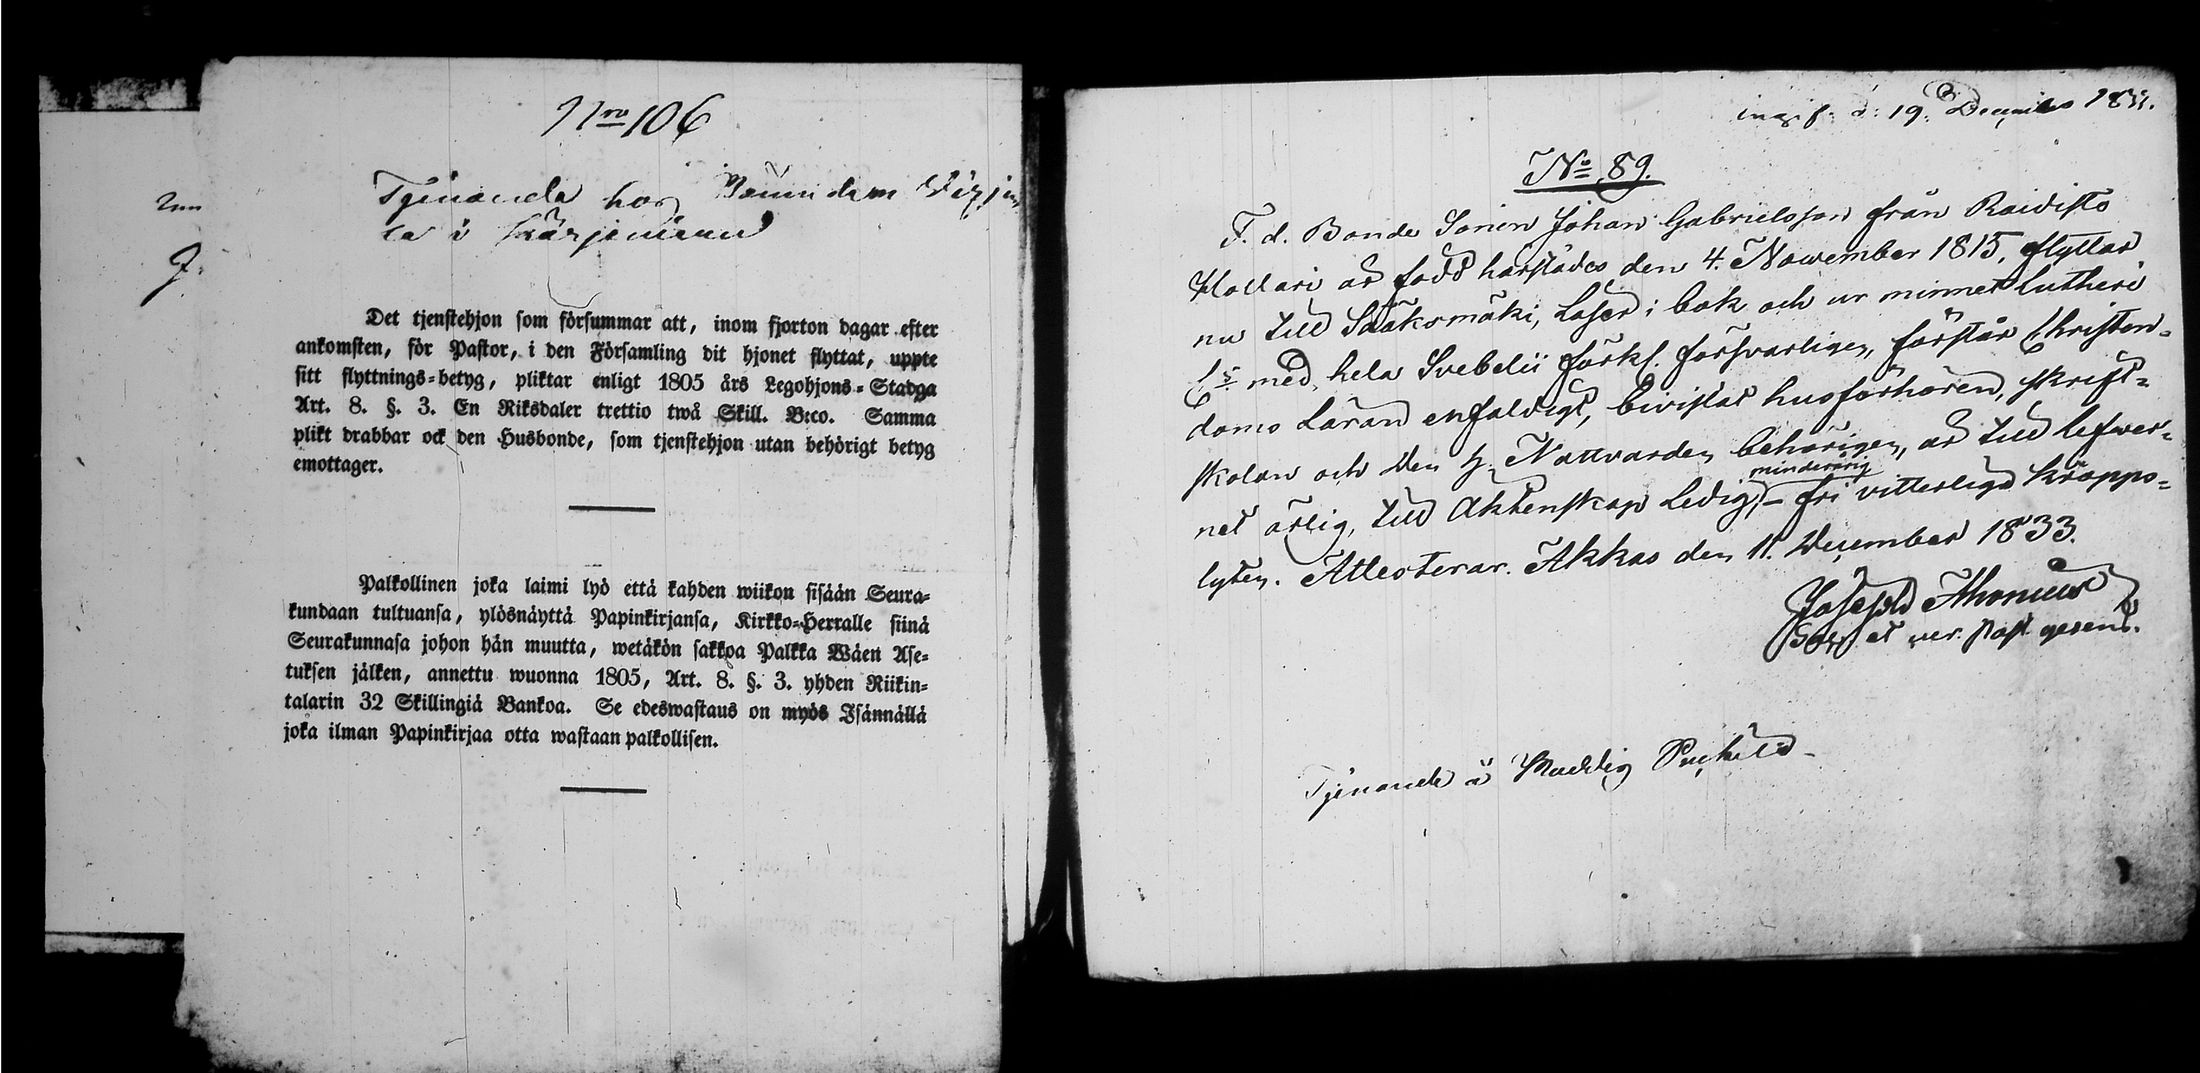 Nro 106
Tjenande hos
la i Kärjeniemi
Det tjenstehjon som försummar att, inom fjorton dagar efter
ankomsten, för Pastor, i den Församling dit hjonet flyttat, uppte
sitt flyttnings-betyg, pliktar enligt 1805 års Legohjons-Stadga
Art. 8. §. 3. En Riksdaler trettio twå Skill. B:co. Samma
plikt drabbar ock den Husbonde, som tjenstehjon utan behörigt betyg
emottager.
Palkollinen joka laimi lyö että kahden wiikon sisään Seura-
kundaan tultuansa, ylösnäyttä Papinkirjansa, Kirkko-Herralle siinä
Seurakunnasa johon hän muutta, wetäkön sakkoa Palkka Wäen Ase-
tuksen jälken, annettu wuonna 1805, Art. 8. §. 3. yhden Riikin-
talarin 32 Skillingiä Bankoa. Se edeswastaus on myös Isännällä
joka ilman Papinkirjaa otta wastaan palkollisen.
ingif. d. 19 December
No 89.
F. d. Bonde Sonen Johan Gabrielsson från Roidisto
Mollari är född härstädes den 4. November 1815, flyttar
nu till Sääksmäki, Läser i bok och ur minnet Lutheri
Cs med hela Svebelii förkl. försvarligen, förstår Christen-
doms Läran enfaldigt, bivistat husförhören, skrift-
skolan och den H. Nattvarden behörigen, är till lefwer-
net ärlig, till Äktenskap Ledig, - minderårig fri vitterliga kropps-
lyten. Attesterar. Akkas den 11. December 1833.
Joseph
et ver. Past. gerens.
Tjenande å